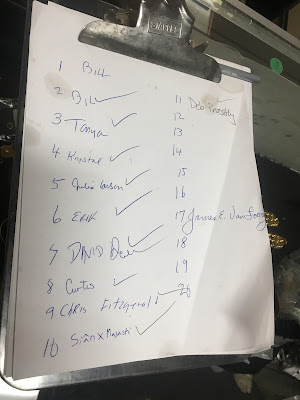 1 Bill
2 Bill
3 Tanya
4 Krystal
5 Julia Larson
6 Erik
7 David
8 Curtis
9 Chris Fitzgerald
10
11 Deb
12
13
14
15
16
17 James E. Van
18
19
20